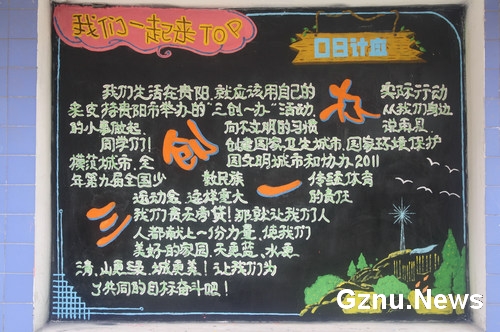 我们一起来TOP
我们生活在贵阳，就应该用自己的 实际行动
来支持贵阳市举办的“三创一办”活动，从我们身边
的小事做起，向不文明的习惯 说再见。
同学们！创建国家卫生城市，国家环境保护
模范城市，全国文明城市和协办2011
年第九届全国少 数民族 传统体育
运动会，这样重大 的责任
我们责无旁贷！那就让我们人
人都献上一份力量，使我们
美好的家园，天更蓝，水更
清，山更绿，城更美！让我们为
了共同的目标奋斗吧！
三创一办
Gznu.News